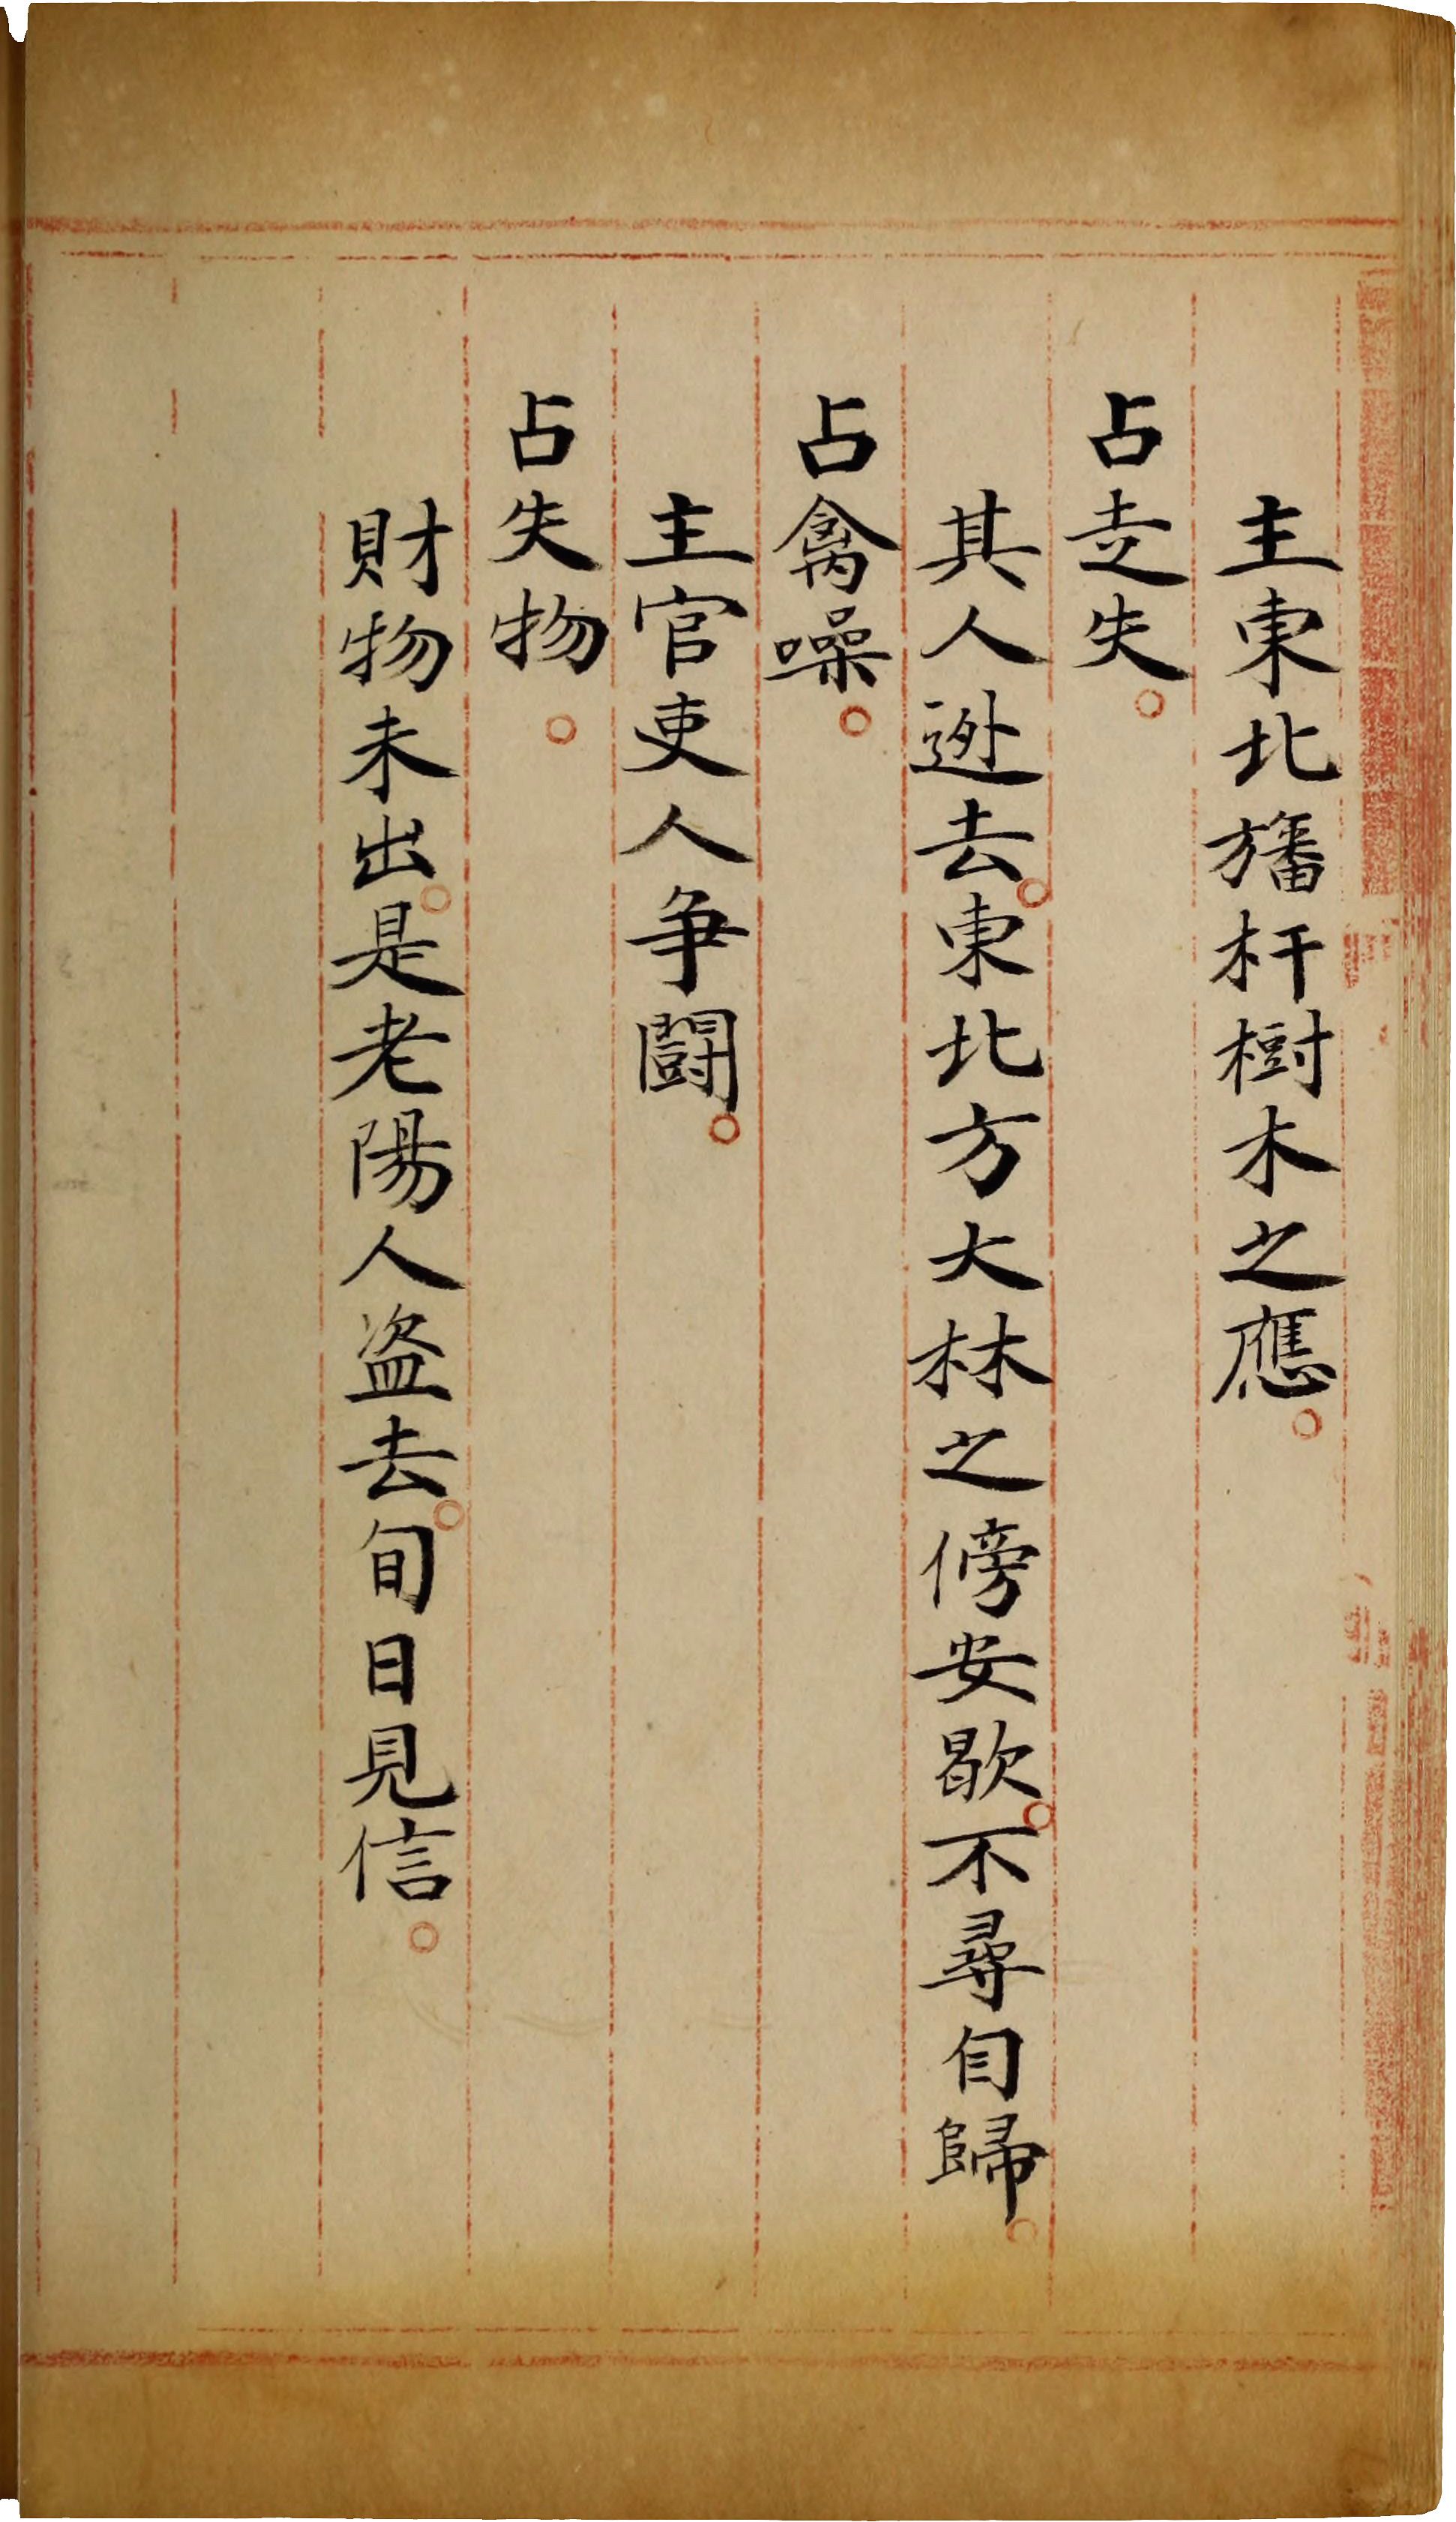 主東北旛杆樹木之應。
占走失。
其人迯去。東北方大林之傍安歇。不尋自歸。
占禽噪。
主官吏人爭鬪。
占失物。
財物未出。是老陽人盗去。旬日見信。